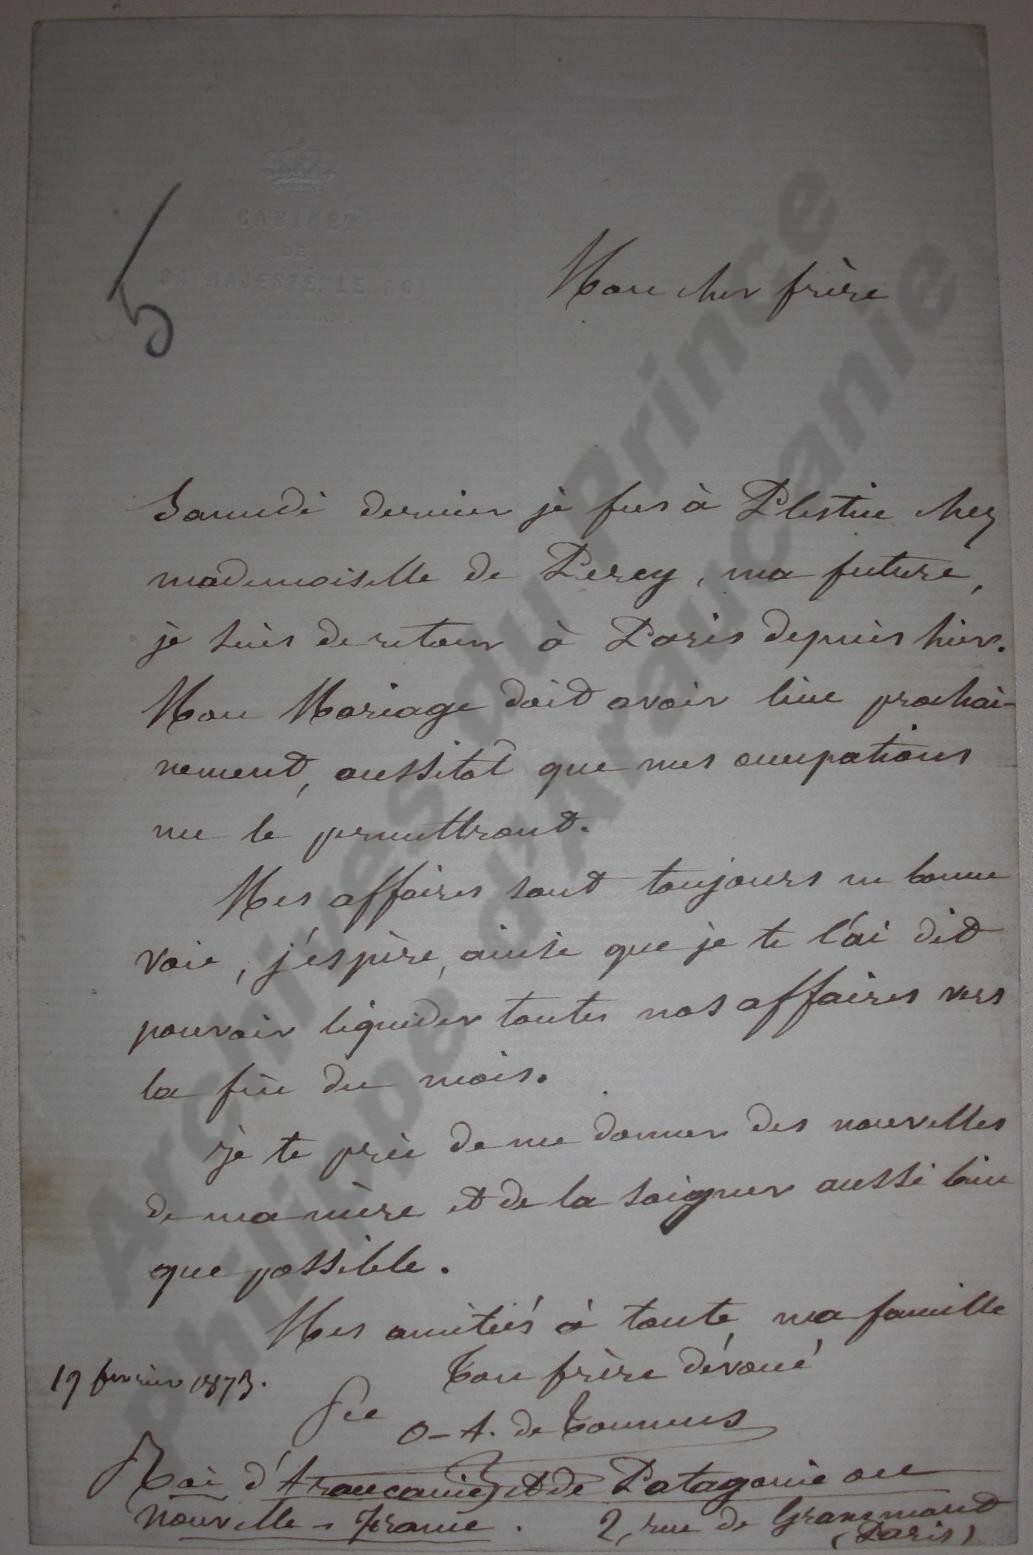 CABINET
DE
SA MAJESTÉ LE ROI
5
Mon cher frère
Samedi dernier je fus à Plestin chez
mademoiselle de Percy, ma future,
je suis de retour à Paris depuis hier.
Mon Mariage doit avoir lieu prochai-
nement, aussitot que mes occupations
me le permettront.
Mes affaires sont toujours en bonne
voie, j'éspère, ainsi que je te l'ai dit
pouvoir liquider toutes nos affaires vers
la fin du mois.
je te prie de me donner des nouvelles
de ma mère et de la soigner aussi bien
que possible.
Mes amitiés à toute ma famille
19 février 1873.
Ton frère dévoué
O-A. de Tounens
Roi d'Araucanie et de Patagonie ou
Nouvelle-France.
2, rue de Grammont
(Paris)
Archives du Prince
Philippe d'Araucanie